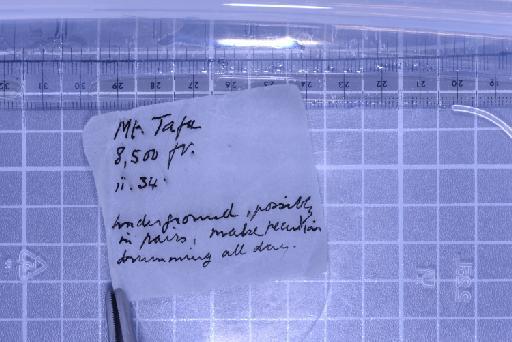 Mt. Tafa
8,500 ft.
ii. 34.
underground, possibly
in pairs, make
drumming all day.
32 31 30 29 28 27 26 25 24 23 22 21 20 19